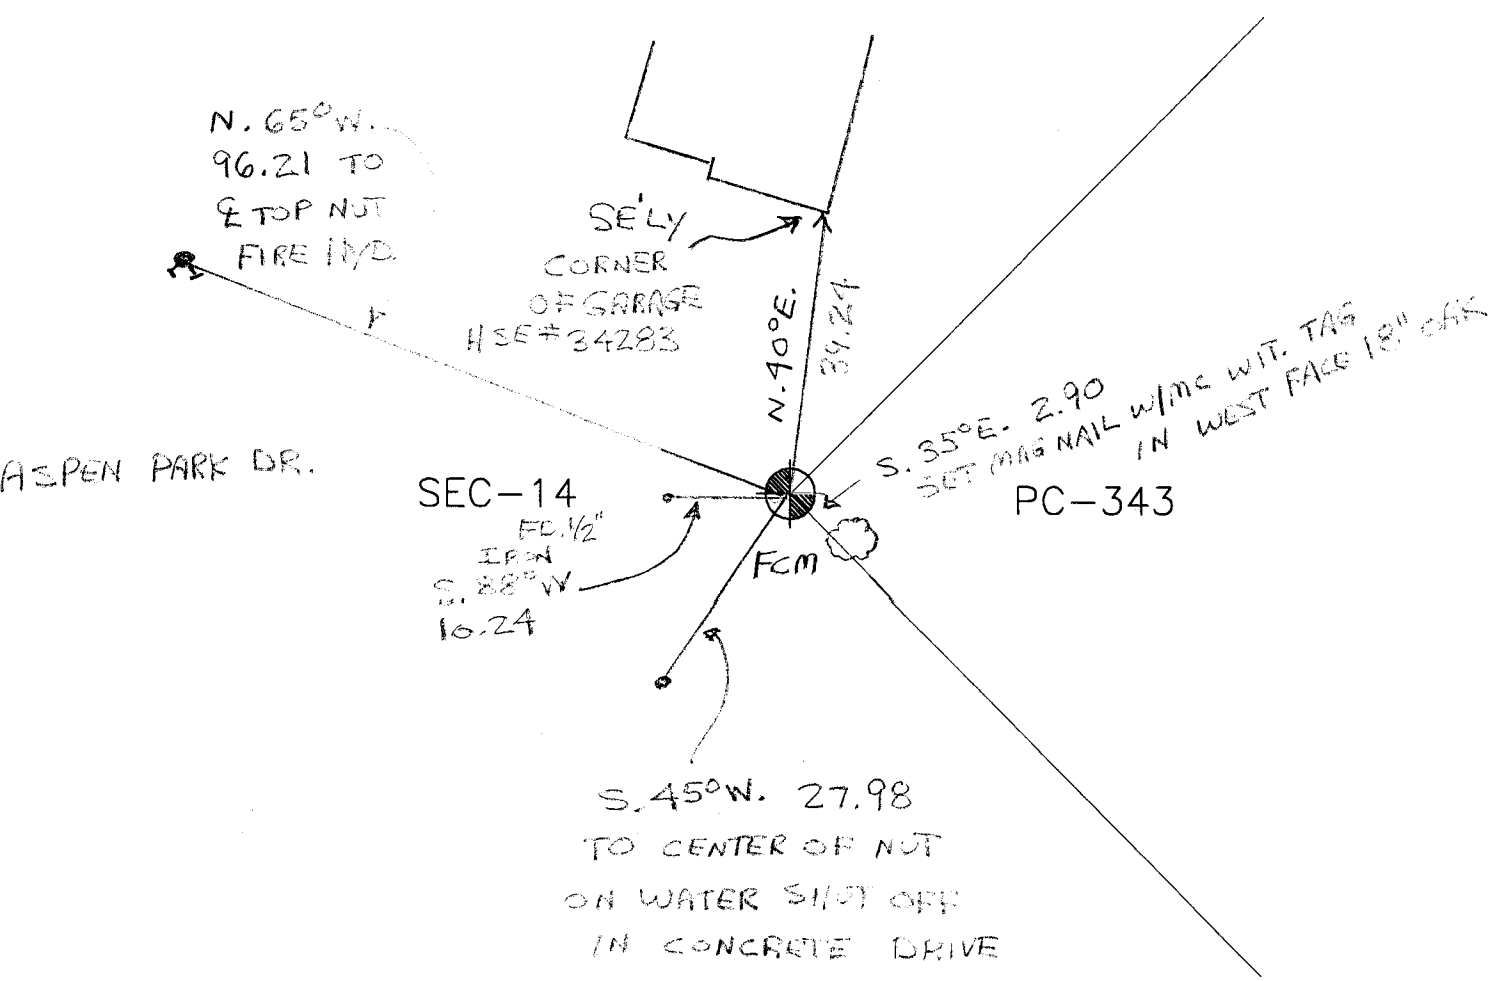 N. 65° W.
96.21 TO
℄ TOP NUT
FIRE HYD.
SE'LY
CORNER
OF GARAGE
HSE # 34283
N. 40° E.
39.24
S. 35° E. 2.90
SET MAG NAIL W/MC WIT. TAG
IN WEST FACE 18" OAK
ASPEN PARK DR.
SEC-14
PC-343
FD. 1/2"
IRON
S. 88° W
10.24
FCM
S. 45° W. 27.98
TO CENTER OF NUT
ON WATER SHUT OFF
IN CONCRETE DRIVE